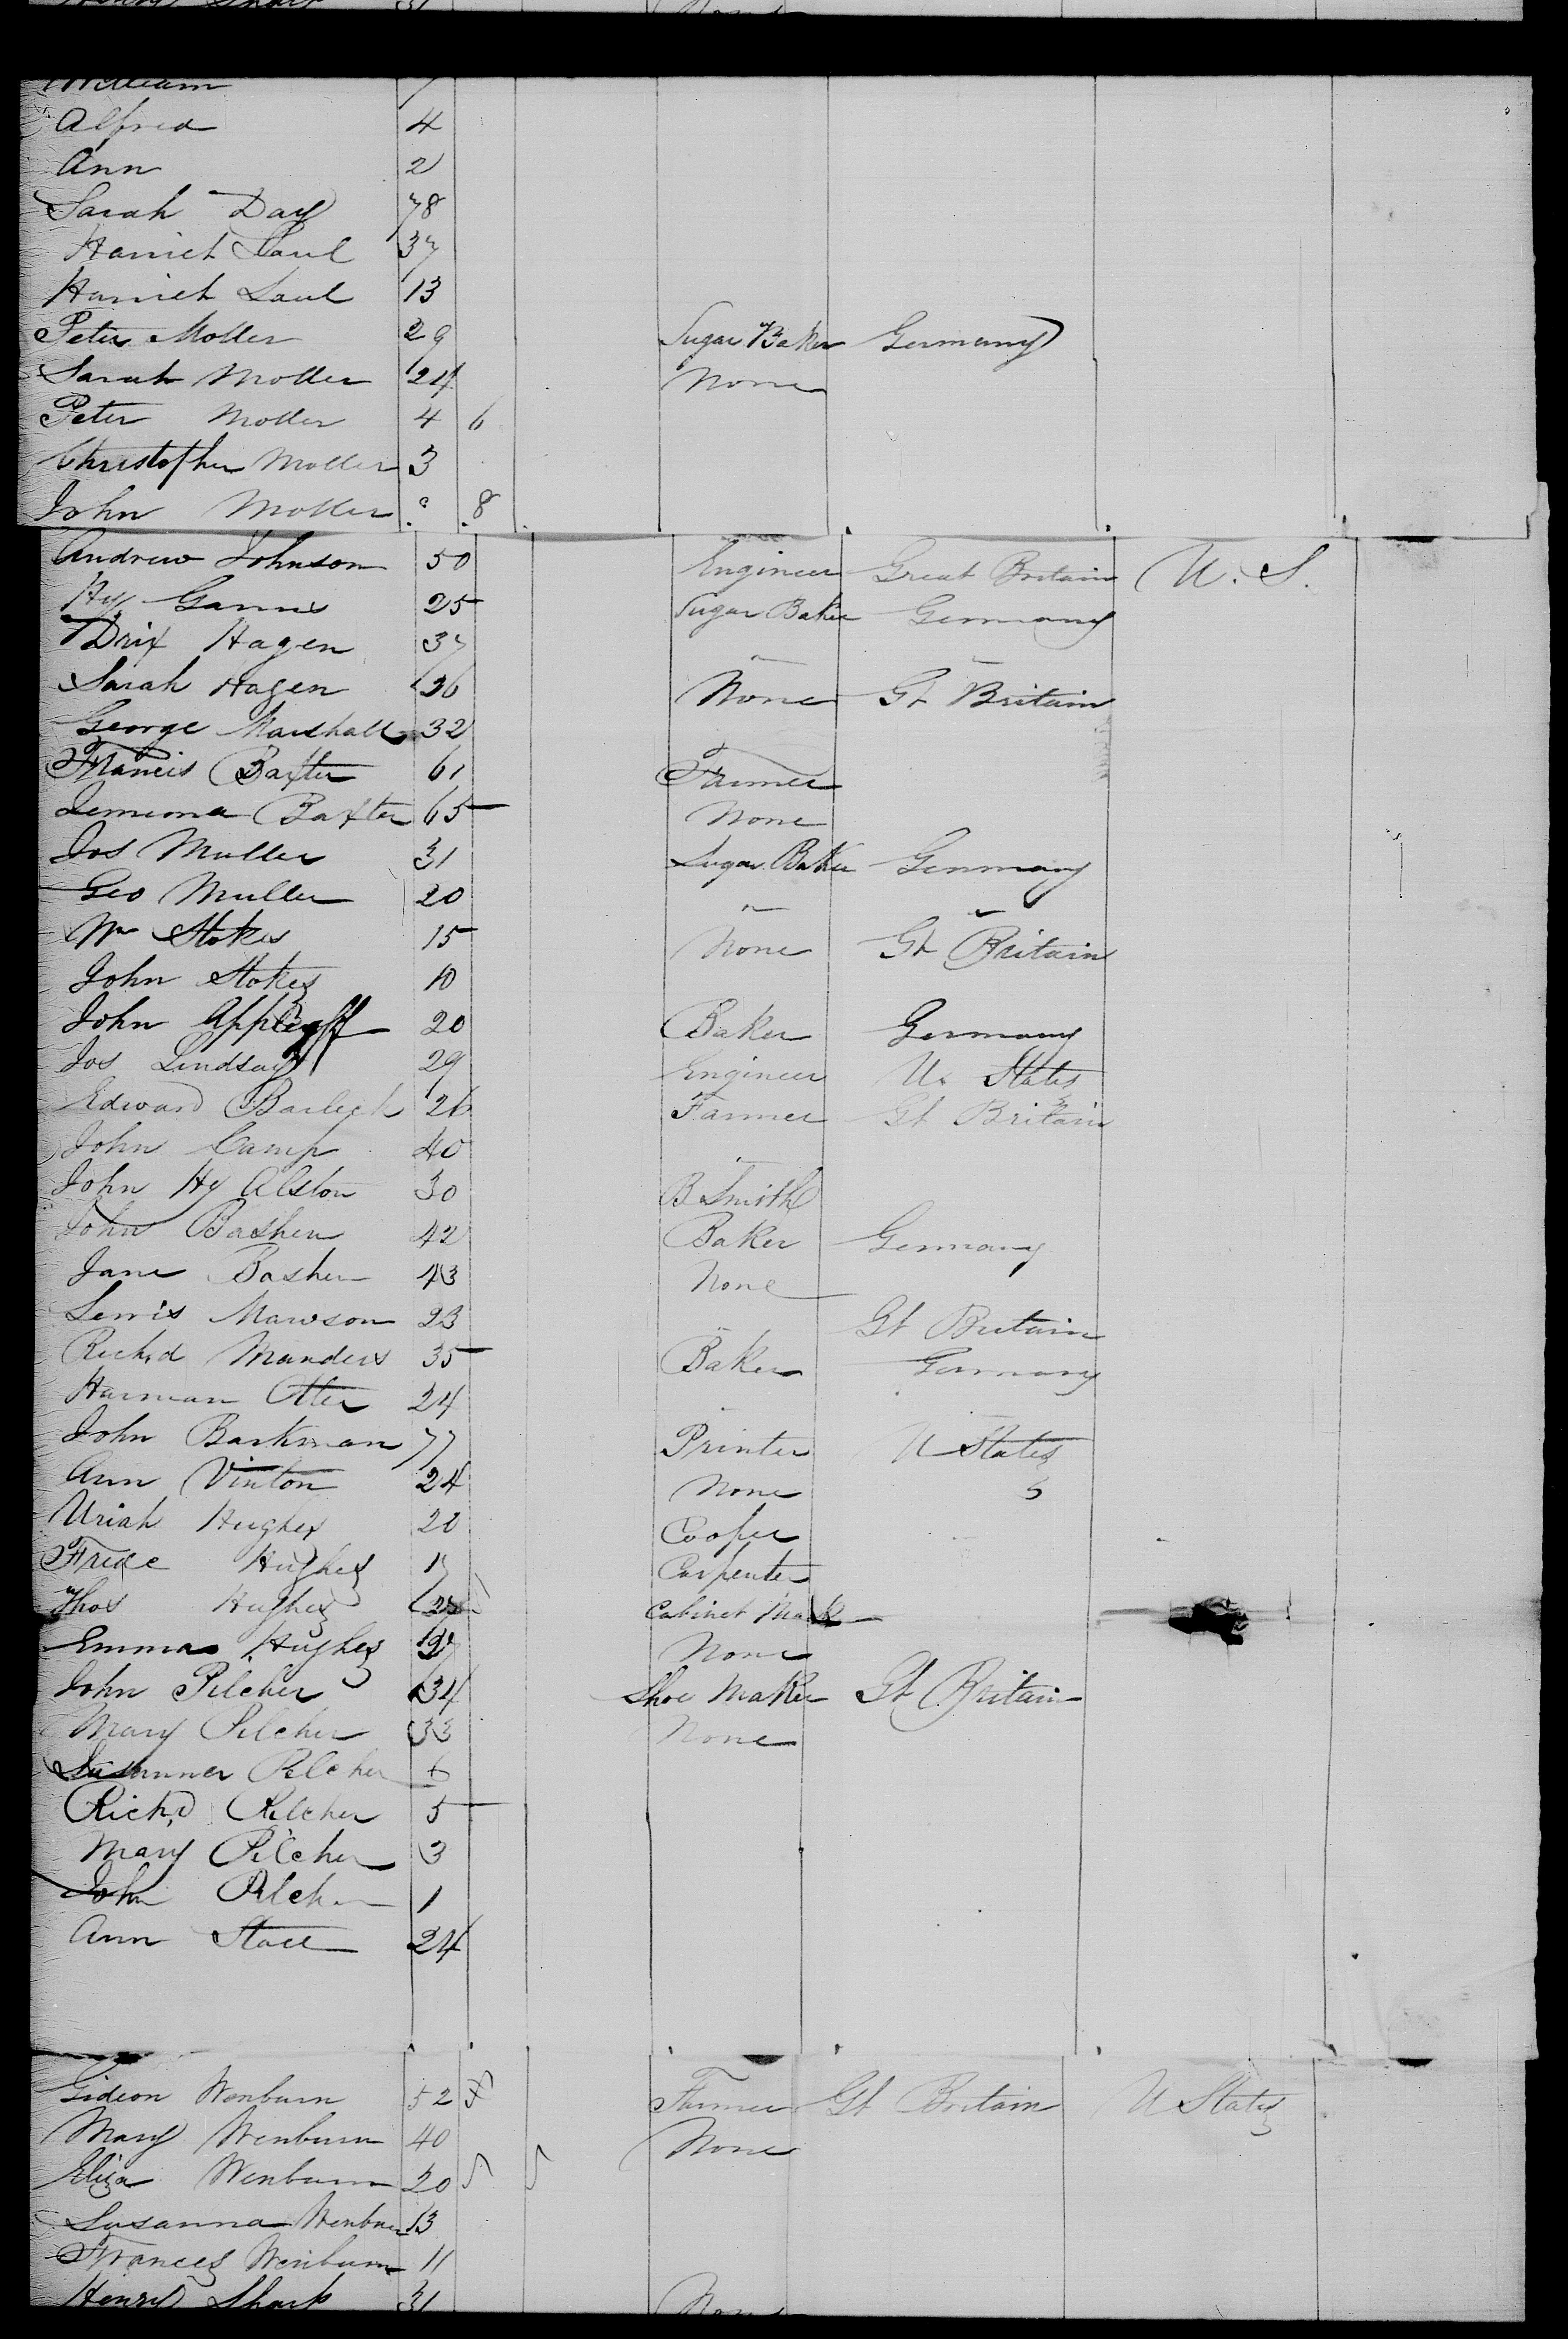 William 7
Alfred 4
Ann 2
Sarah Day 78
Harriet Saul 37
Harriet Saul 13
Peter Moller 29 Sugar Baker Germany
Sarah Moller 24 None
Peter Moller 4 6
Christopher Moller 3
John Moller 8
Andrew Johnson 50 Engineer Great Britain U. S.
Hy 25 Sugar Baker Germany
Hagen 37 "  "
Sarah Hagen 26 None Gt Britain
George Marshall 32
Francis Baxter 61 Farmer
Jemima Baxter 65 None
Jos Muller 31 Sugar Baker Germany
Geo Muller 20 " "
Wm Stokes 15 None Gt Britain
John Stokes 10
John 20 Baker Germany
Jos Lindsay 29 Engineer U. States
Edward 26 Farmer Gt Britain
John Camp 40
John Hy Alston 30 B Smith
John Bashen 42 Baker Germany
Jane Bashen 43 None
Lewis Mawson 23 Gt Britain
Richd Manders 35 Baker Germany
Harman Otter 24
John Barkman 77 Printer U States
Ann Vinton 24 None
Uriah Hughes Cooper
Hughes Carpenter
Thos Hughes Cabinet Mak
Emma Hughes None
John Pilcher 34 Shoe Maker Gt Britain
Mary Pilcher 33 None
Susanna Pilcher 6
Richd Pilcher 5
Mary Pilcher 3
John Pilcher 1
Ann 24
Gideon Wenburn 52 Farmer Gt Britain U States
Mary Wenburn 40 None
Eliza Wenburn 20
Susanna Wenburn 13
Frances Wenburn 11
Henry Sharp 31 None